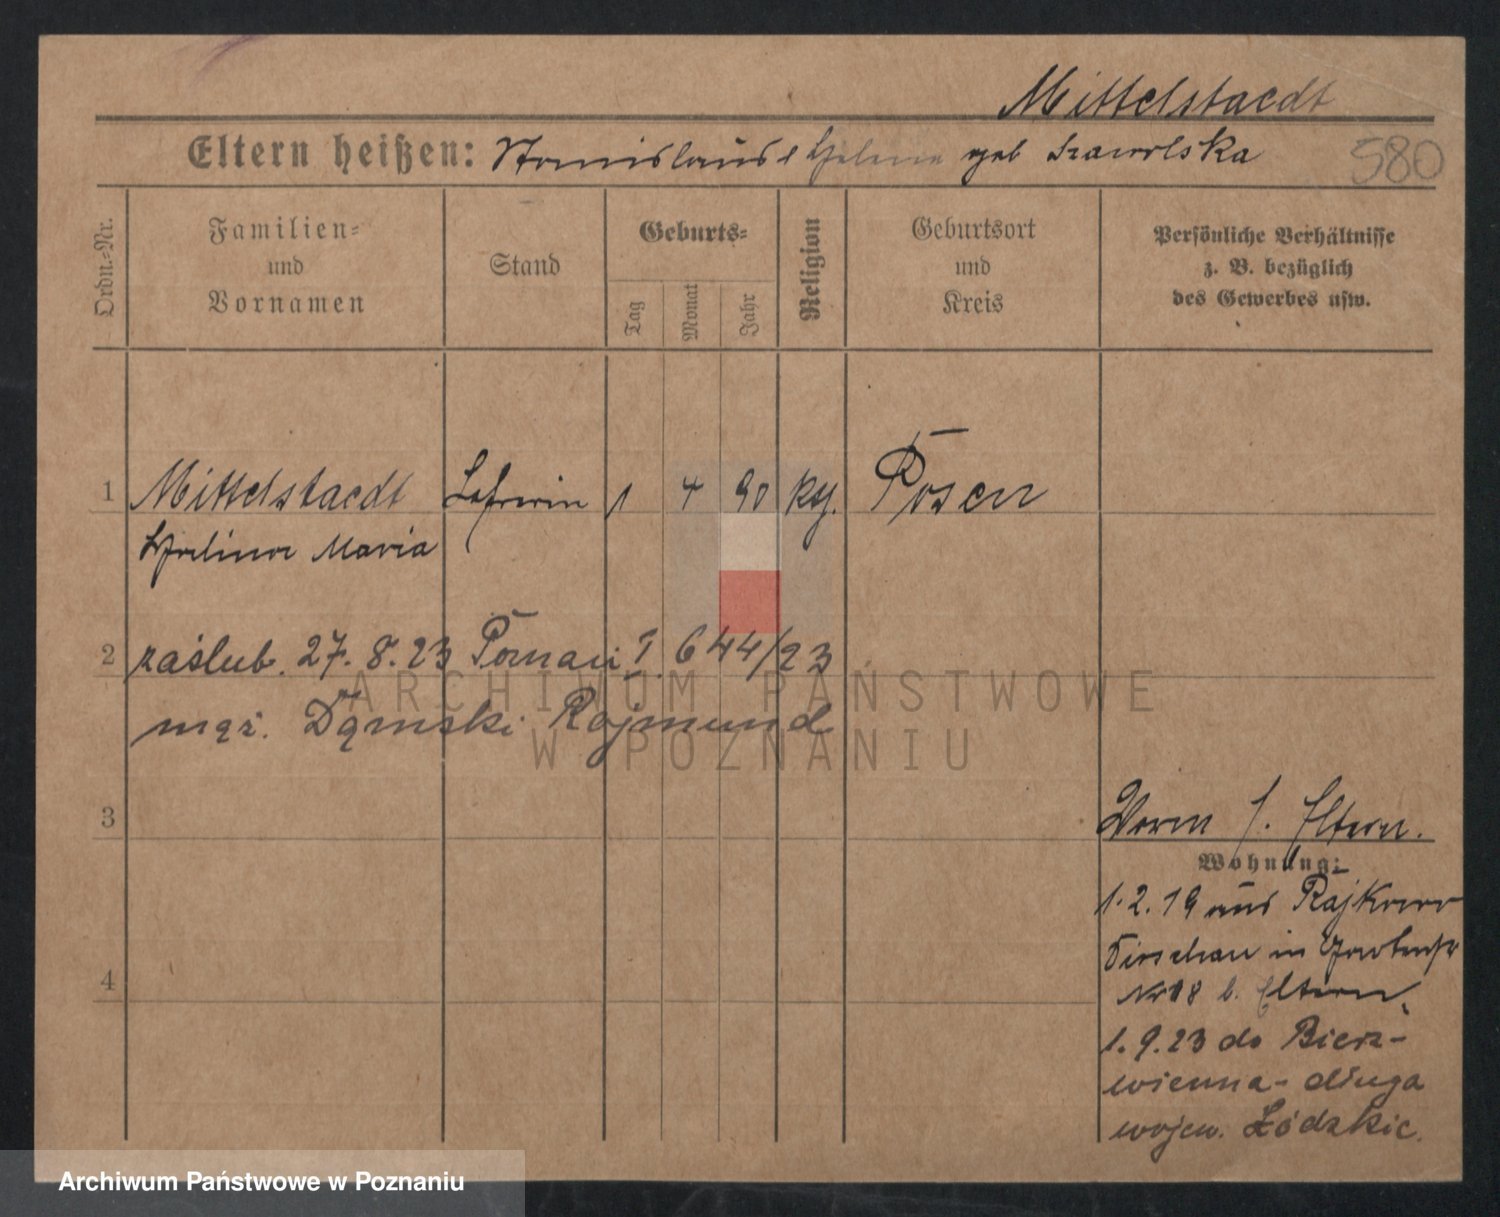 Mittelstaedt
Eltern heißen: Stanislaus & Helena geb Szawelska
580
Ordn.=Nr.
Familien=
und
Vornamen
Stand
Geburts=
Tag
Monat
Jahr
Religion
Geburtsort
und
Kreis
Persönliche Verhältnisse
z. B. bezüglich
des Gewerbes usw.
1 Mittelstaedt Lehrerin 1 4 90 kth. Posen
Halina Maria
2 zaślub. 27. 8. 23 Poznań I 644/23
mąż. Dąmski Rajmund
3
Worm s. Eltern.
Wohnung:
1. 2. 19 aus Rajkowo
Dirschau in
Nr 18 b. Eltern.
4
1. 9. 23 do Bierz-
wienna-długa
wojew. Łódzkie.
ARCHIWUM PAŃSTWOWE
W POZNANIU
Archiwum Państwowe w Poznaniu